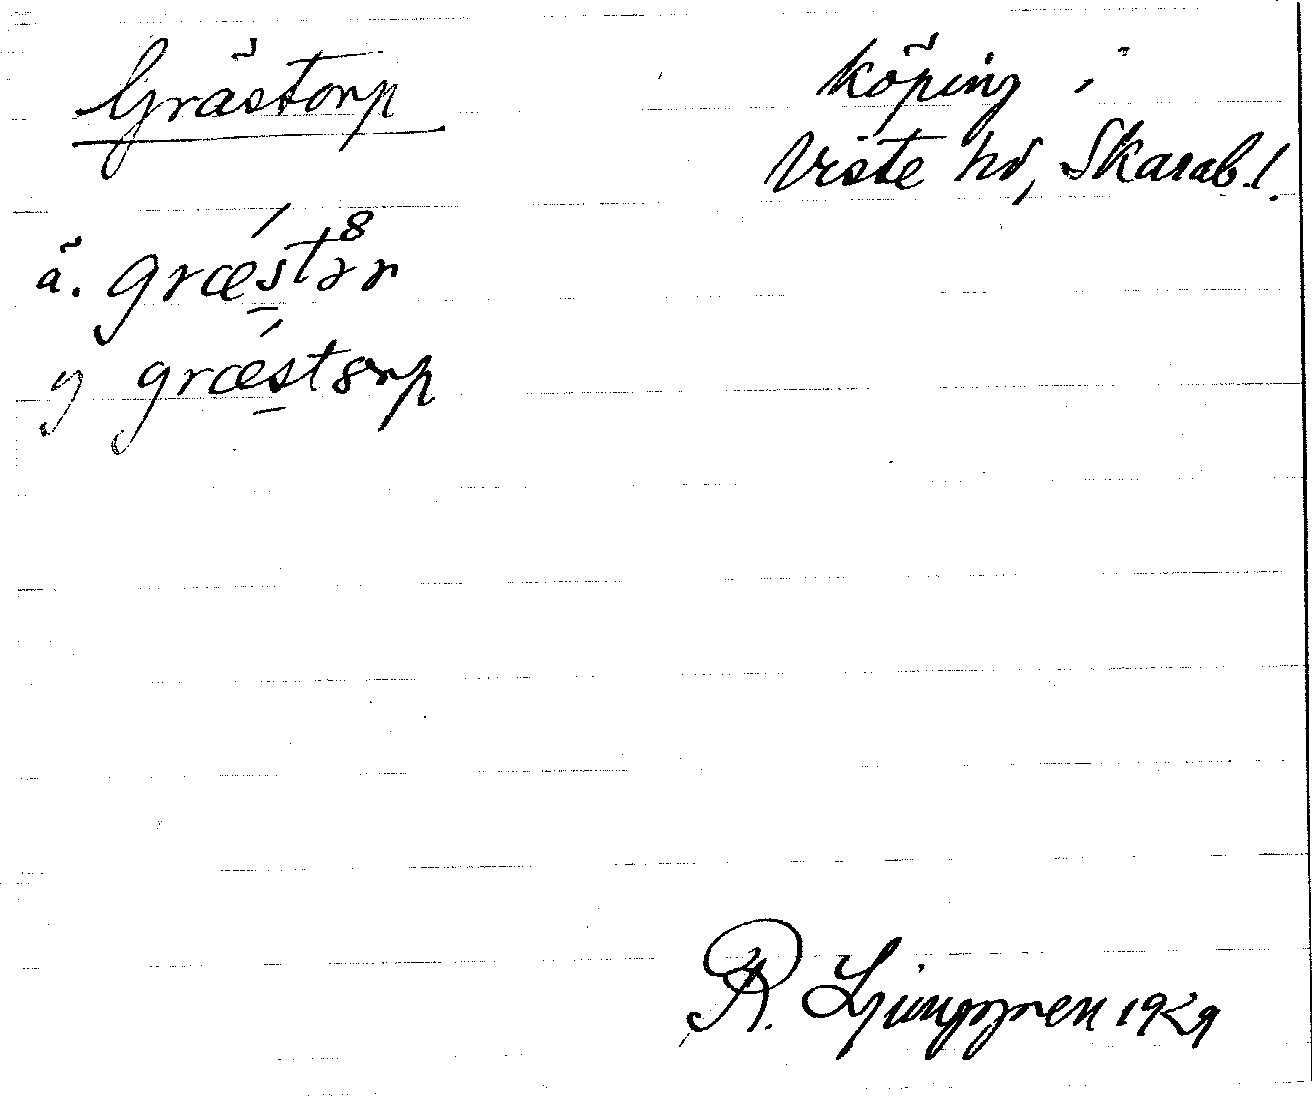 Grästorp
köping i
Viste hd, Skarab. l.
ä. græ´stər
y græ´st8rp
R. Ljunggren 1929